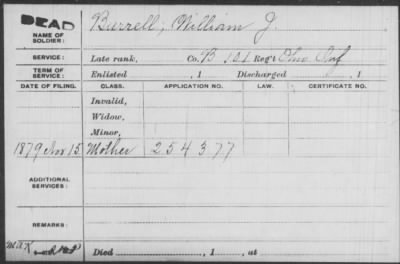 DEAD
NAME OF SOLDIER: Burrell, William J.
SERVICE: Late rank, Co. B 101 Reg't Ohio Inf
TERM OF SERVICE: Enlisted , 1 Discharged , 1
DATE OF FILING. CLASS. APPLICATION NO. LAW. CERTIFICATE NO.
Invalid,
Widow,
Minor,
1879 Nov 15 Mother 254377
ADDITIONAL SERVICES:
REMARKS:
Died , 1 , at